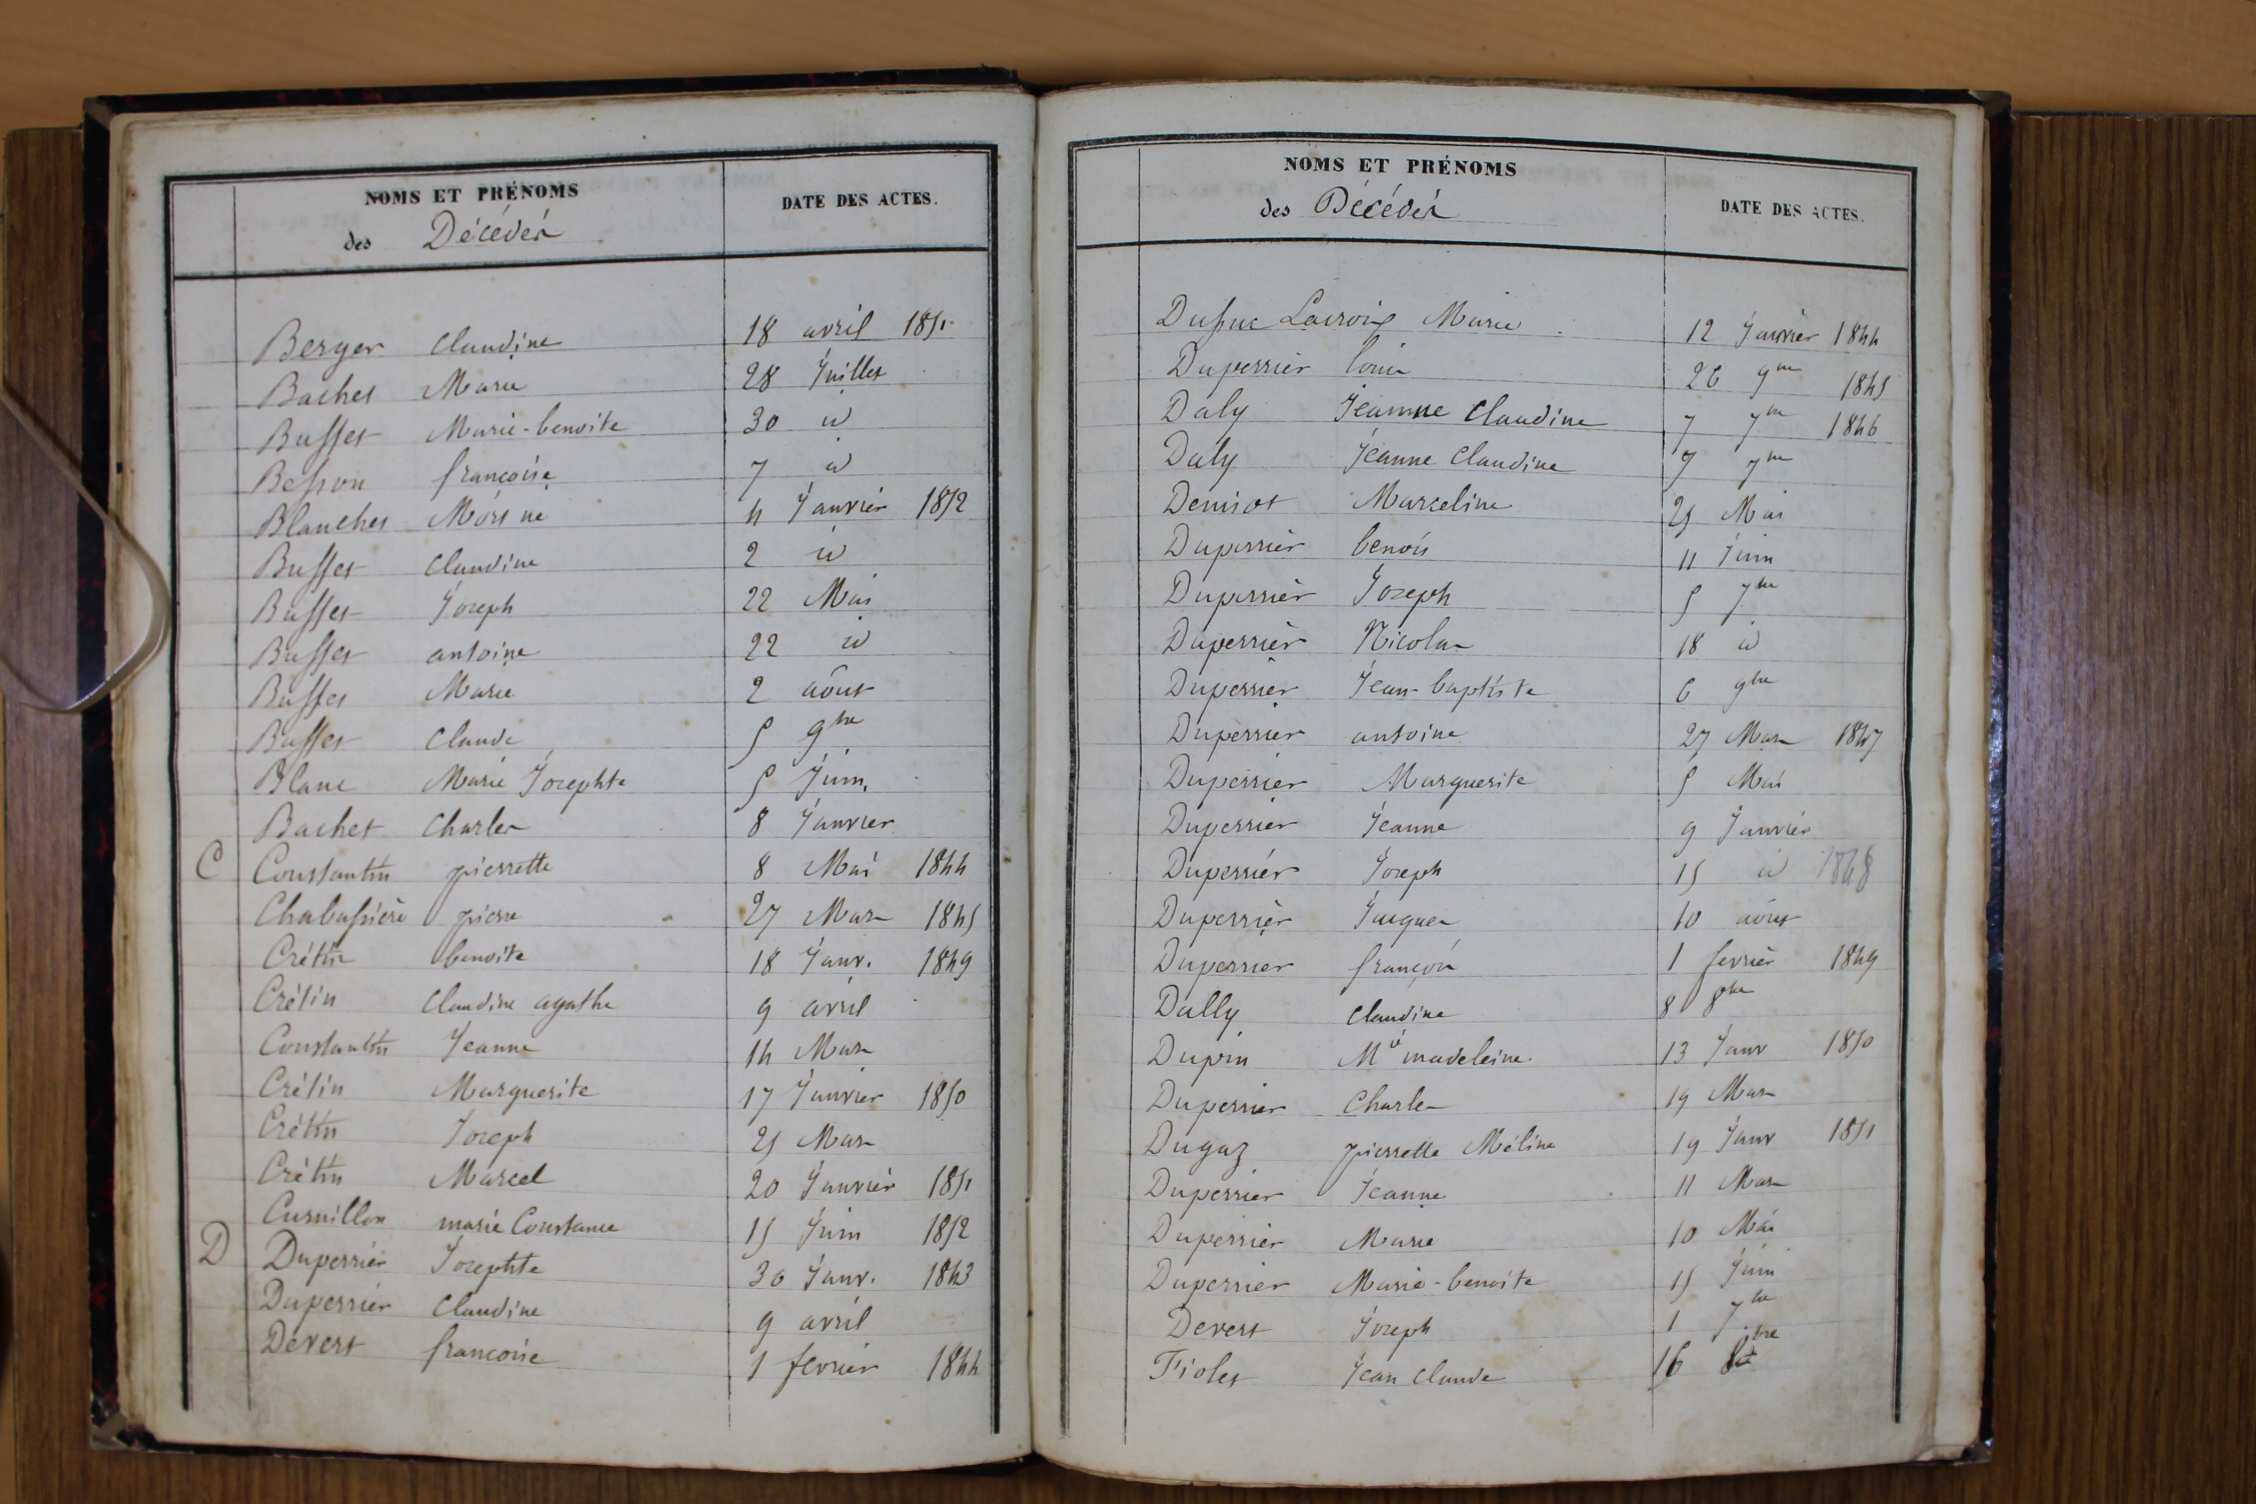 NOMS ET PRÉNOMS
des Décédés
DATE DES ACTES.
Berger Claudine 18 avril 1851
Bachet Marie 28 Juillet
Buffet Marie-benoite 30 id
Besson françoise 7 id
Blanchet 4 Janvier 1852
Buffet Claudine 2 id
Buffet Joseph 22 Mai
Buffet antoine 22 id
Buffet Marie 2 août
Buffet Claude 5 9bre
Blanc Marie Josephte 5 Juin
Bachet Charles 8 Janvier
C Constantin pierrette 8 Mai 1844
Chabassière pierre 27 Mars 1845
Crétin benoite 18 Janv. 1849
Crétin Claudine agathe 9 avril
Constantin Jeanne 14 Mars
Crétin Marguerite 17 Janvier 1850
Crétin Joseph 25 Mars
Crétin Marcel 20 Janvier 1851
Curnillon marie Constance 15 Juin 1852
D Duperrier Josephte 30 Janv. 1843
Duperrier Claudine 9 avril
Devert françoise 1 fevrier 1844
NOMS ET PRÉNOMS
des Décédés
DATE DES ACTES.
Dufuc Lacroix Marie 12 Janvier 1844
Duperrier louis 26 9bre 1845
Daly Jeanne Claudine 7 7bre 1846
Daly Jeanne Claudine 7 7bre
Deniot Marceline 25 Mai
Duperrier benoit 11 Juin
Duperrier Joseph 5 7bre
Duperrier Nicolas 18 id
Duperrier Jean-baptiste 6 9bre
Duperrier antoine 27 Mars 1847
Duperrier Marguerite 5 Mai
Duperrier Jeanne 9 Janvier
Duperrier Joseph 15 id 1848
Duperrier Jacques 10 août
Duperrier françois 1 fevrier 1849
Dally Claudine 8 8bre
Dupin Mie madeleine 13 Janv 1850
Duperrier Charles 19 Mars
Dugaz pierrette Méline 19 Janv 1851
Duperrier Jeanne 11 Mars
Duperrier Marie 10 Mai
Duperrier Marie-benoite 15 Juin
Devert Joseph 1 7bre
Fiolet Jean Claude 16 8bre